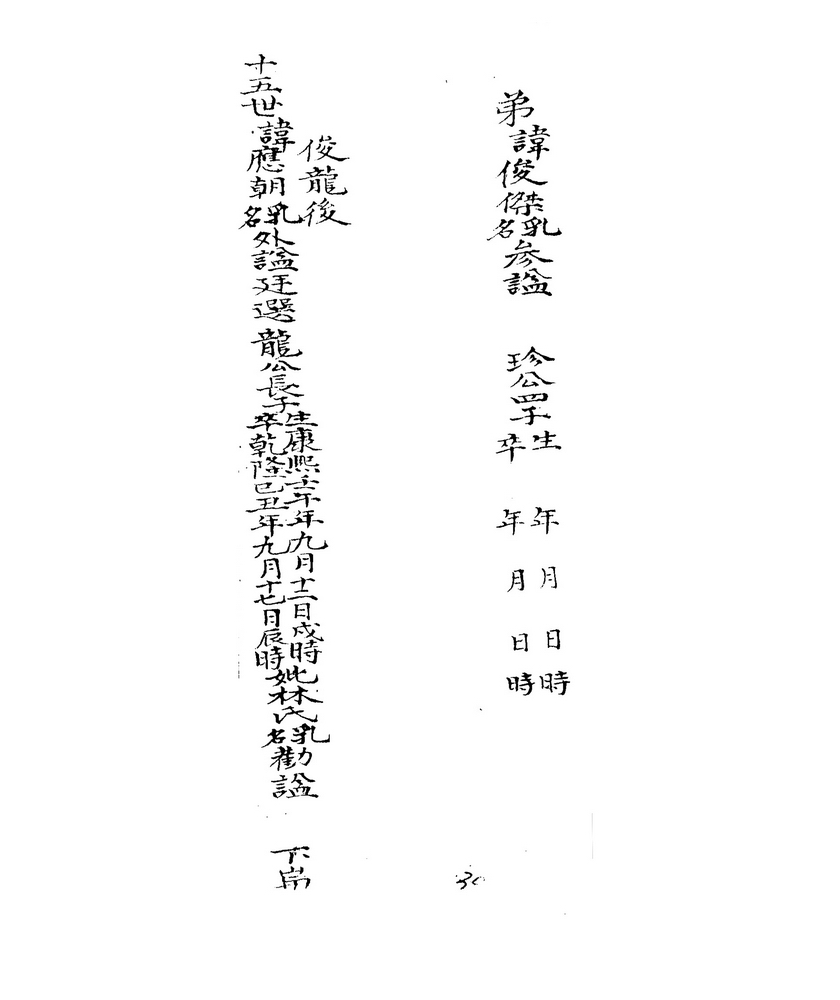 弟諱俊傑乳名参諡 珍公四子生 年 月 日 時
卒 年 月 日 時
俊龍後
十五世諱應朝乳名外諡廷選龍公長子生康熙壬午年九月十二日戌時
卒乾隆己丑年九月十七日辰時妣林氏乳名勸諡 下
30